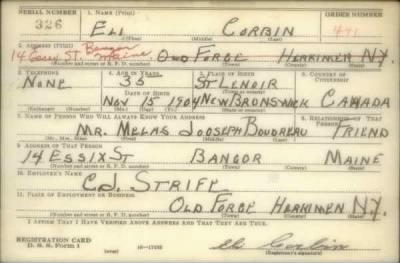 SERIAL NUMBER 1. NAME (Print) ORDER NUMBER
326 ELI CORBIN 441
(First) (Middle) (Last)
2. ADDRESS (Print) Bangor
14 St. Maine OLD FORGE HERKIMER N.Y.
(Number and street or R. F. D. number) (Town) (County) (State)
3. TELEPHONE 4. AGE IN YEARS 5. PLACE OF BIRTH 6. COUNTRY OF CITIZENSHIP
NONE 35 ST LENOIR
DATE OF BIRTH
NOV 15 1904 NEW BRONSWICK CANADA
(Exchange) (Number) (Mo.) (Day) (Yr.) (State or country)
7. NAME OF PERSON WHO WILL ALWAYS KNOW YOUR ADDRESS 8. RELATIONSHIP OF THAT PERSON
MR. MELAS JOOSEPH BOUDREAU FRIEND
(Mr., Mrs., Miss) (First) (Middle) (Last)
9. ADDRESS OF THAT PERSON
14 ESSIX ST BANGOR MAINE
(Number and street or R. F. D. number) (Town) (County) (State)
10. EMPLOYER'S NAME
STRIFE
11. PLACE OF EMPLOYMENT OR BUSINESS
OLD FORGE HERKIMER N.Y.
(Number and street or R. F. D. number) (Town) (County) (State)
I AFFIRM THAT I HAVE VERIFIED ABOVE ANSWERS AND THAT THEY ARE TRUE.
REGISTRATION CARD
D. S. S. Form 1 16-17105 Eli Corbin
(Registrant's signature)